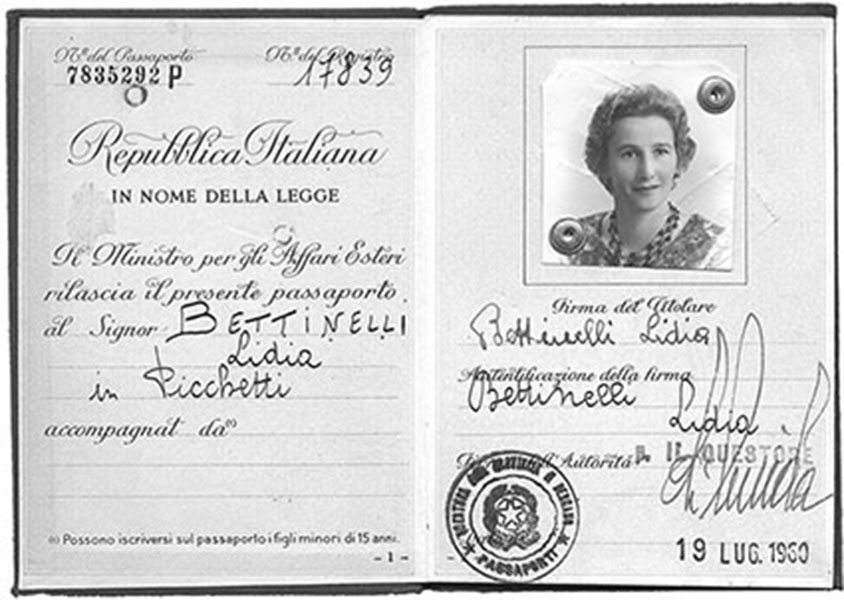 Nº del Passaporto
7835292 P
Nº del Registro
17839
Repubblica Italiana
IN NOME DELLA LEGGE
Il Ministro per gli Affari Esteri
rilascia il presente passaporto
al Signor BETTINELLI
Lidia
in Picchetti
accompagnat da⁽¹⁾
(1) Possono iscriversi sul passaporto i figli minori di 15 anni.
- 1 -
Firma del Titolare
Bettinelli Lidia
Autentificazione della firma
Bettinelli Lidia
Firma dell'Autorità
P. IL QUESTORE
PASSAPORTI
19 LUG. 1960